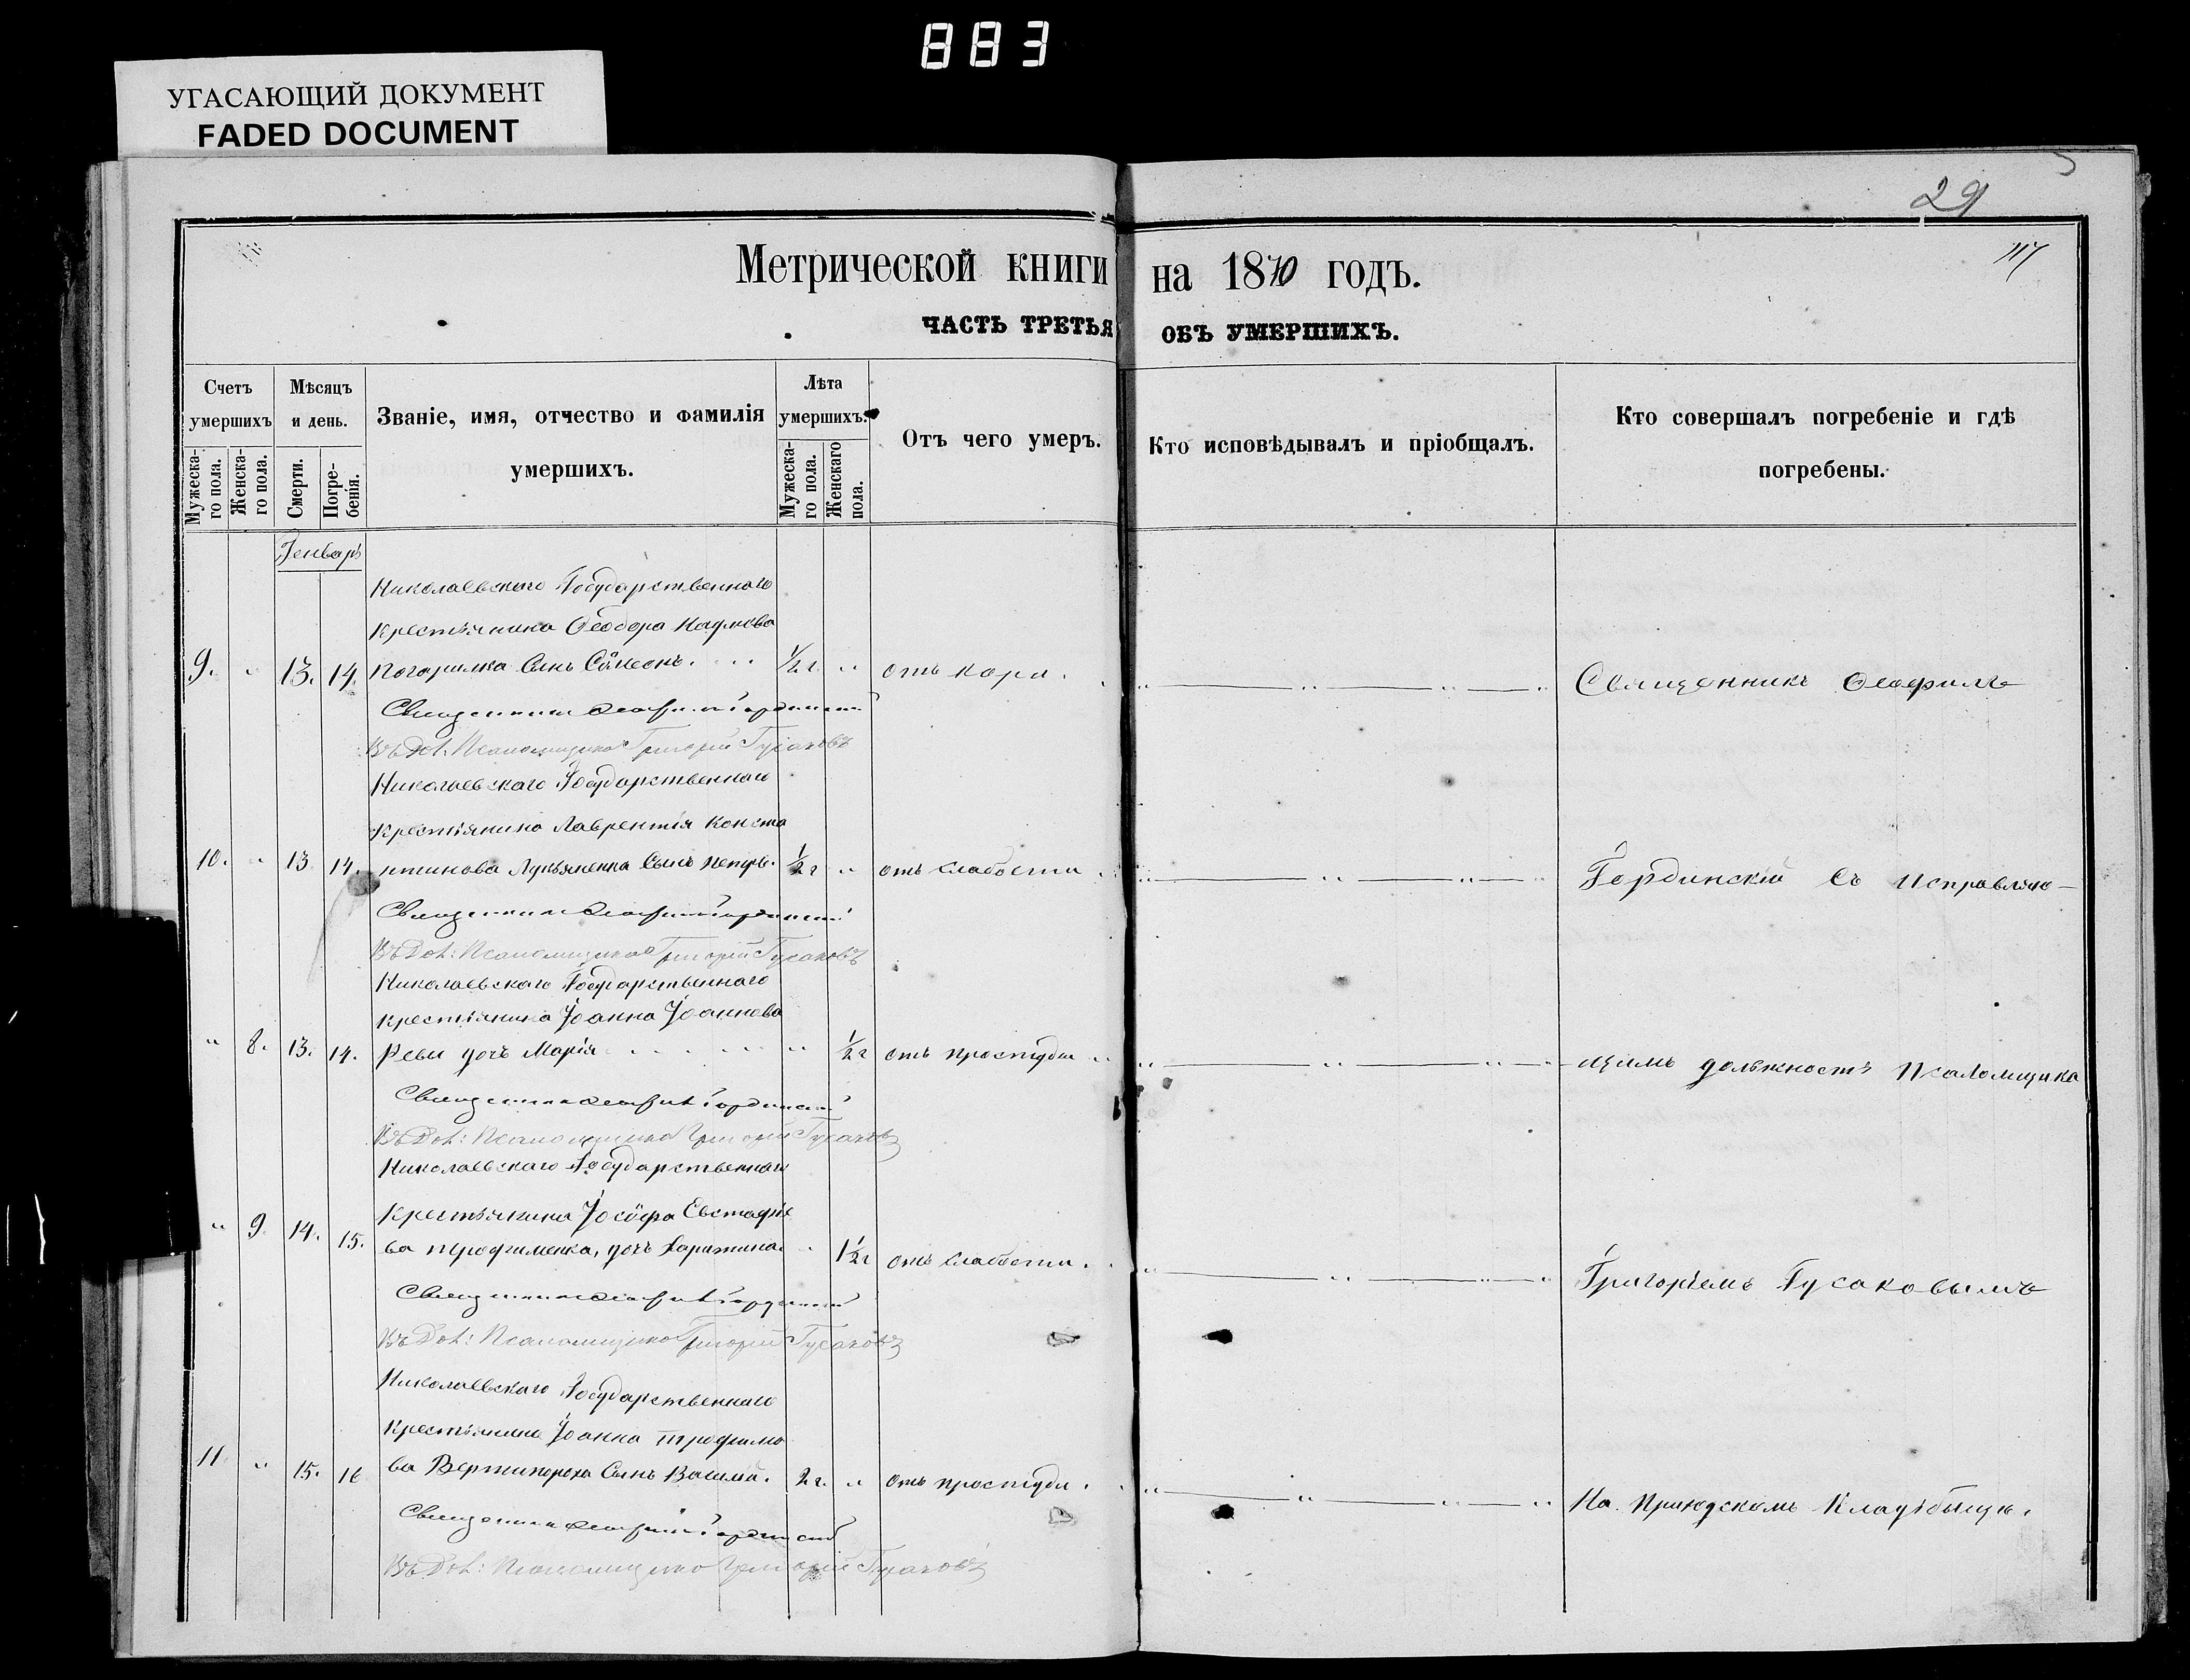 883
УГАСАЮЩИЙ ДОКУМЕНТ
FADED DOCUMENT
29
117
Метрической книги на 1870 годъ.
ЧАСТЬ ТРЕТЬЯ ОБЪ УМЕРШИХЪ.
Счетъ умершихъ
Мужеска-го пола.
Женска-го пола.
Мѣсяцъ и день.
Смерти.
Погре-бенія.
Званіе, имя, отчество и фамилія умершихъ.
Лѣта умершихъ.
Мужеска-го пола.
Женскаго пола.
Отъ чего умеръ.
Кто исповѣдывалъ и пріобщалъ.
Кто совершалъ погребеніе и гдѣ погребены.
Генварь
Николаевского Государственного
Крестьянина Ѳеодора Наумова
9. " 13. 14. Погорилка Сынъ Сѵмеонъ. ½ г. " отъ кора. Священникъ Ѳеофилъ
Священникъ Ѳеофилъ Гординскій
Въ Дол: Псаломщика Григорій Гусаковъ
Николаевскаго Государственнаго
Крестьянина Лаврентія Конста
10. " 13 14. нтинова Лукьяненка Сынъ Петръ. ½ г " отъ слабости Гординскій съ исправляю-
Священникъ Ѳеофилъ Гординскій
Въ Дол: Псаломщика Григорій Гусаковъ
Николаевского Государственного
Крестьянина Іоанна Іоаннова
" 8. 13. 14. Ревы дочь Марія " ½ г отъ простуды щимъ должность Псаломщика
Священникъ Ѳеофилъ Гординскій
Въ Дол: Псаломщика Григорій Гусаковъ
Николаевскаго Государственнаго
Крестьянина Іосифа Евстафіе
" 9. 14. 15. ва дочь Харитина. " 1½ г отъ слабости. Григоріемъ Гусаковымъ
Священникъ Ѳеофилъ Гординскій
Въ Дол: Псаломщика Григорій Гусаковъ
Николаевскаго Государственнаго
Крестьянина Іоанна Трофимо
11. " 15. 16 ва Вертипороха Сынъ Василій. 2 г. " отъ простуды. На Приходскомъ Кладьбищѣ.
Священникъ Ѳеофилъ Гординскій
Въ Дол: Псаломщика Григорій Гусаковъ